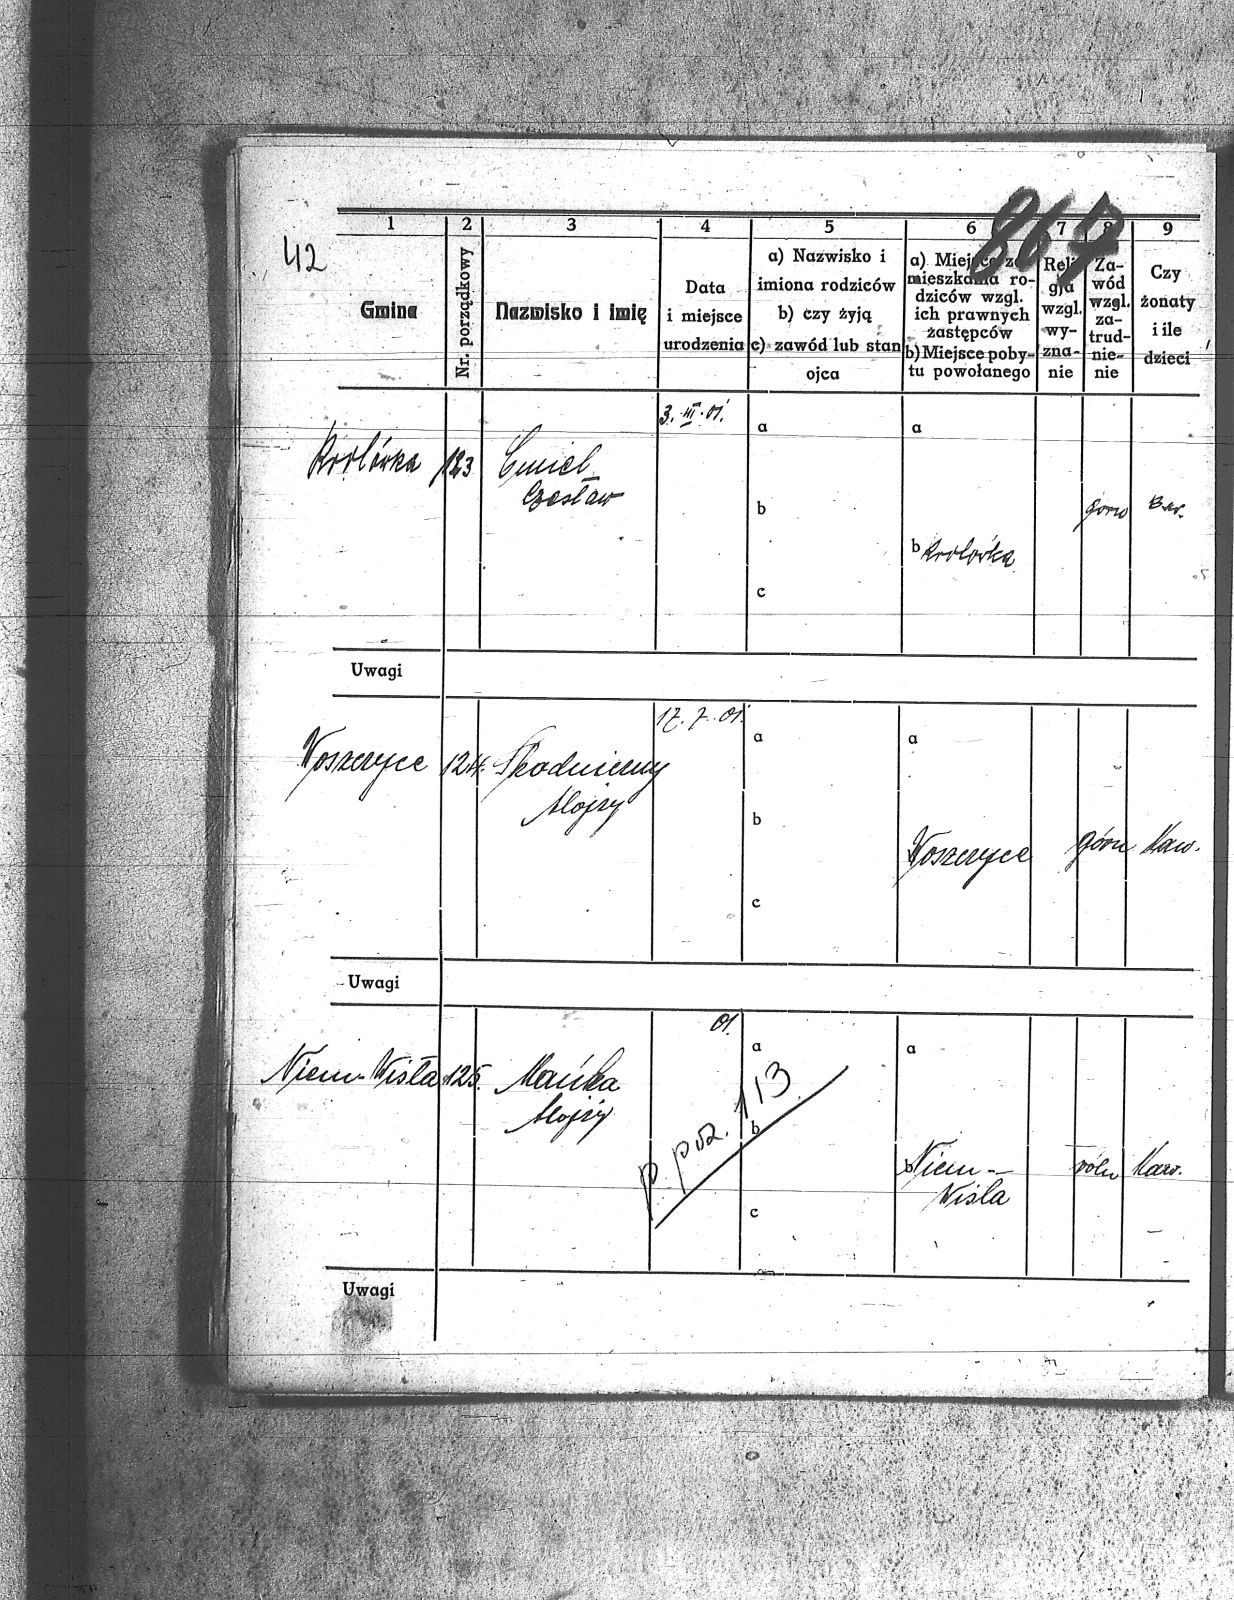 42
867
1 2 3 4 5 6 7 8 9
Gmina
Nr. porządkowy
Nazwisko i imię
Data
i miejsce
urodzenia
a) Nazwisko i
imiona rodziców
b) czy żyją
c) zawód lub stan
ojca
a) Miejsce za-
mieszkania ro-
dziców wzgl.
ich prawnych
zastępców
b) Miejsce poby-
tu powołanego
Reli-
gja
wzgl.
wy-
zna-
nie
Za-
wód
wzgl.
za-
trud-
nie-
nie
Czy
żonaty
i ile
dzieci
Królówka 123 Cmiel
Czesław
3. III. 01.
a
b
c
a
b Królówka
górn
Uwagi
Woszczyce 124. Skodnierny
Alojzy
17. 7. 01.
a
b
c
a
Woszczyce
górn Kaw.
Uwagi
Niem-Wisła 125. Mańka
Alojzy
01.
p. poz. 113
a
b
c
a
b Niem-
Wisla
roln Kaw.
Uwagi